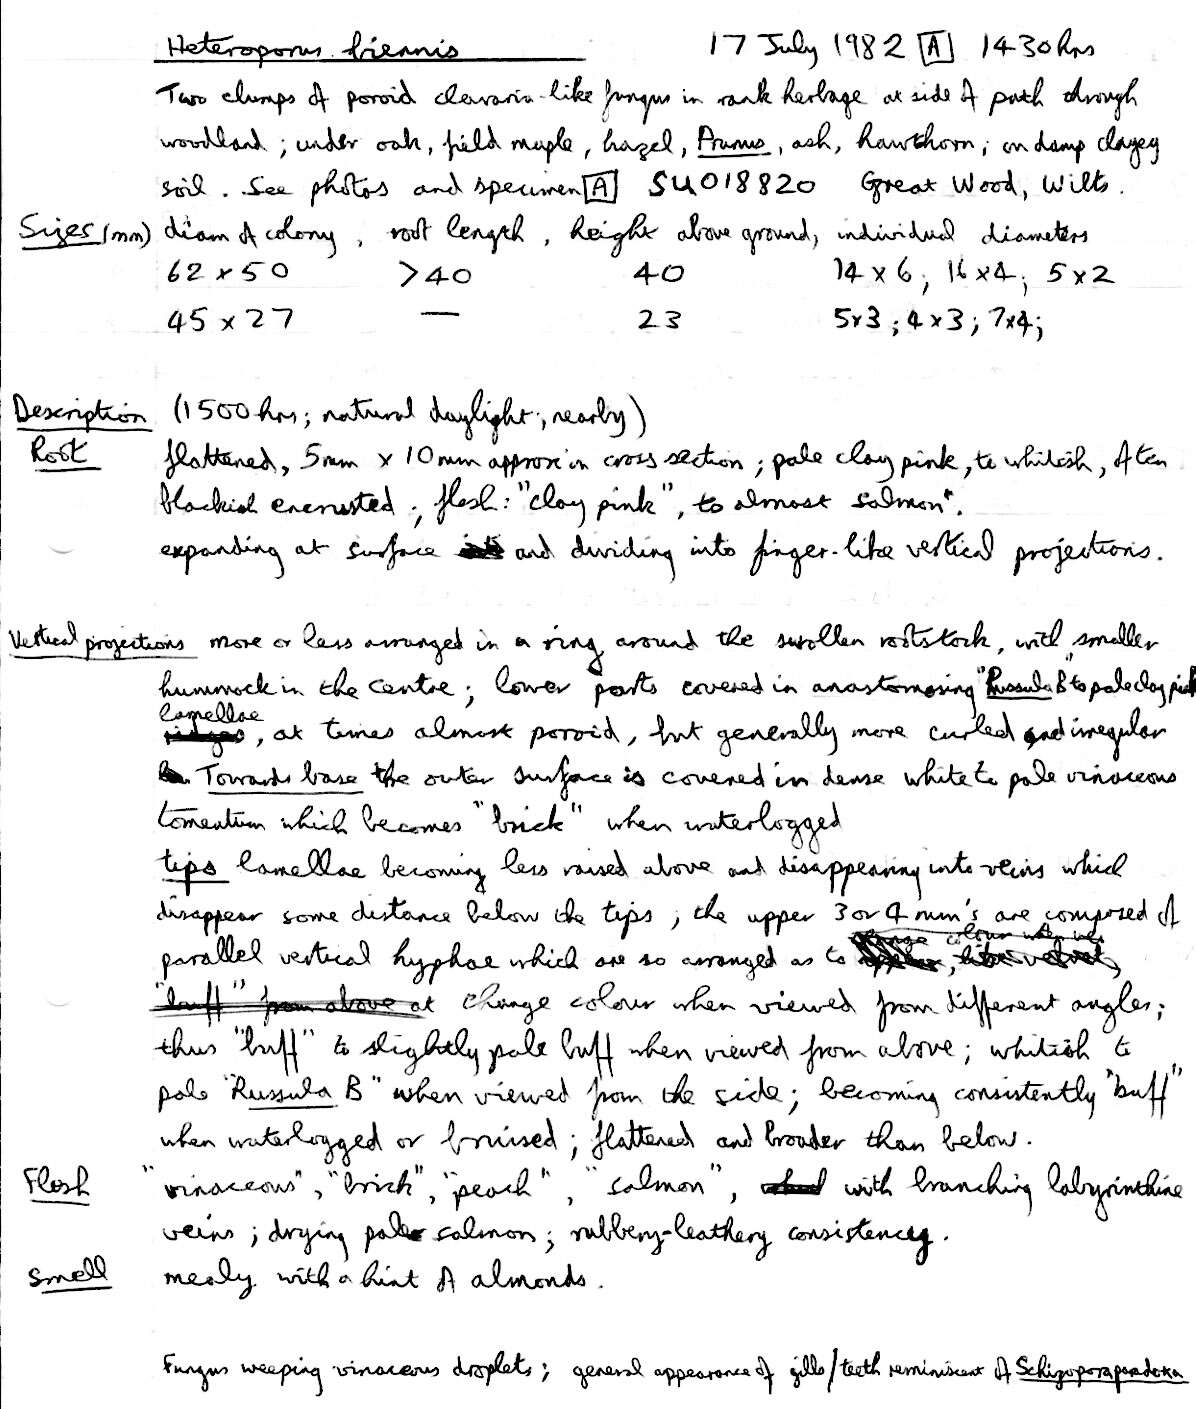 Heteroporus biennis 17 July 1982 [A] 1430 hrs
Two clumps of poroid clavaria-like fungus in rank herbage at side of path through
woodland; under oak, field maple, hazel, Prunus, ash, hawthorn; on damp clayey
soil. See photos and specimen [A] SU018820 Great Wood, Wilts.
Sizes (mm) diam of colony, root length, height above ground, individual diameters
62 x 50 >40 40 14 x 6; 16 x 4; 5 x 2
45 x 27 — 23 5x3; 4x3; 7x4;
Description (1500 hrs; natural daylight; nearby)
Root flattened, 5mm x 10mm approx in cross section; pale clay pink, to whitish, often
blackish encrusted; flesh: "clay pink", to almost salmon".
expanding at surface and dividing into finger-like vertical projections.
Vertical projections more or less arranged in a ring around the swollen rootstock, with smaller
hummock in the centre; lower parts covered in anastomosing "Russula B" to pale clay pink
lamellae
ridges, at times almost poroid, but generally more curled and irregular
Towards base the outer surface is covered in dense white to pale vinaceous
tomentum which becomes "brick" when waterlogged
tips lamellae becoming less raised above and disappearing into veins which
disappear some distance below the tips; the upper 3 or 4 mm's are composed of
change colour when
parallel vertical hyphae which are so arranged as to , like velvet,
"buff" from above at change colour when viewed from different angles;
thus "buff" to slightly pale buff when viewed from above; whitish to
pale "Russula B" when viewed from the side; becoming consistently "buff"
when waterlogged or bruised; flattened and broader than below.
Flesh "vinaceous", "brick", "peach", "salmon", with branching labyrinthine
veins; drying pale salmon; rubbery-leathery consistency.
Smell mealy with a hint of almonds.
Fungus weeping vinaceous droplets; general appearance of gills/teeth reminiscent of Schizopora paradoxa